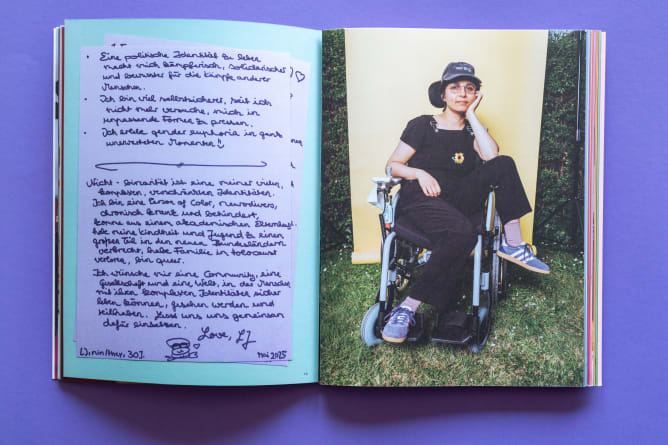 • Eine politische Identität zu leben
macht mich kämpferisch, solidarischer
und bewusster für die Kämpfe anderer
Menschen.
• Ich bin viel selbstsicherer, seit ich
nicht mehr versuche, mich in
unpassende Formen zu pressen.
• Ich erlebe gender euphoria in ganz
unerwarteten Momenten
Nicht-binarität ist eine meiner vielen,
komplexen, verschränkten Identitäten.
Ich bin eine Person of Color, neurodivers,
chronisch krank und behindert,
komme aus einem akademischen Elternhaus,
habe meine Kindheit und Jugend zu einem
großen Teil in den neuen Bundesländern
verbracht, habe Familie im Holocaust
verloren, bin queer.
Ich wünsche mir eine Community, eine
Gesellschaft und eine Welt, in der Menschen
mit ihren komplexen Identitäten sicher
leben können, gesehen werden und
teilhaben. Lass uns uns gemeinsam
dafür einsetzen.
Love, LJ
30J.
Mai 2025